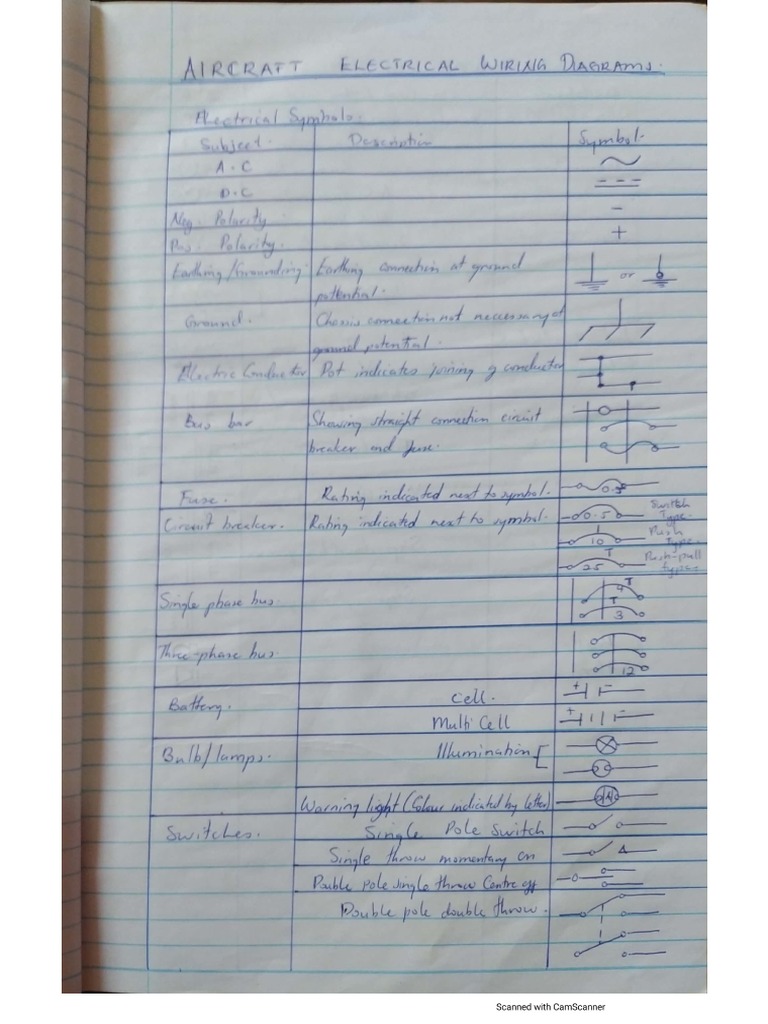 AIRCRAFT ELECTRICAL WIRING DIAGRAMS.
Electrical Symbols.
Subject. Description Symbol.
A.C
D.C
Neg. Polarity -
Pos. Polarity. +
Earthing/Grounding. Earthing connection at ground or
potential.
Ground. Chassis connection not neccessary at
ground potential.
Electric Conductor Dot indicates joining of conductor
Bus bar Showing straight connection circuit
breaker and fuse.
Fuse. Rating indicated next to symbol. 0.5
Circuit breaker. Rating indicated next to symbol. 0.5 Switch
Type.
10 Push
Type.
T 25 Push-pull
type.
Single phase bus. 4 T
T 3
Three-phase bus. 12
Battery. Cell. + -
Multi Cell + -
Bulb/lamps. Illumination [
Warning light (Colour indicated by letter) A
Switches. Single Pole Switch
Single throw momentary on
Double pole single throw Centre off
Double pole double throw.
Scanned with CamScanner